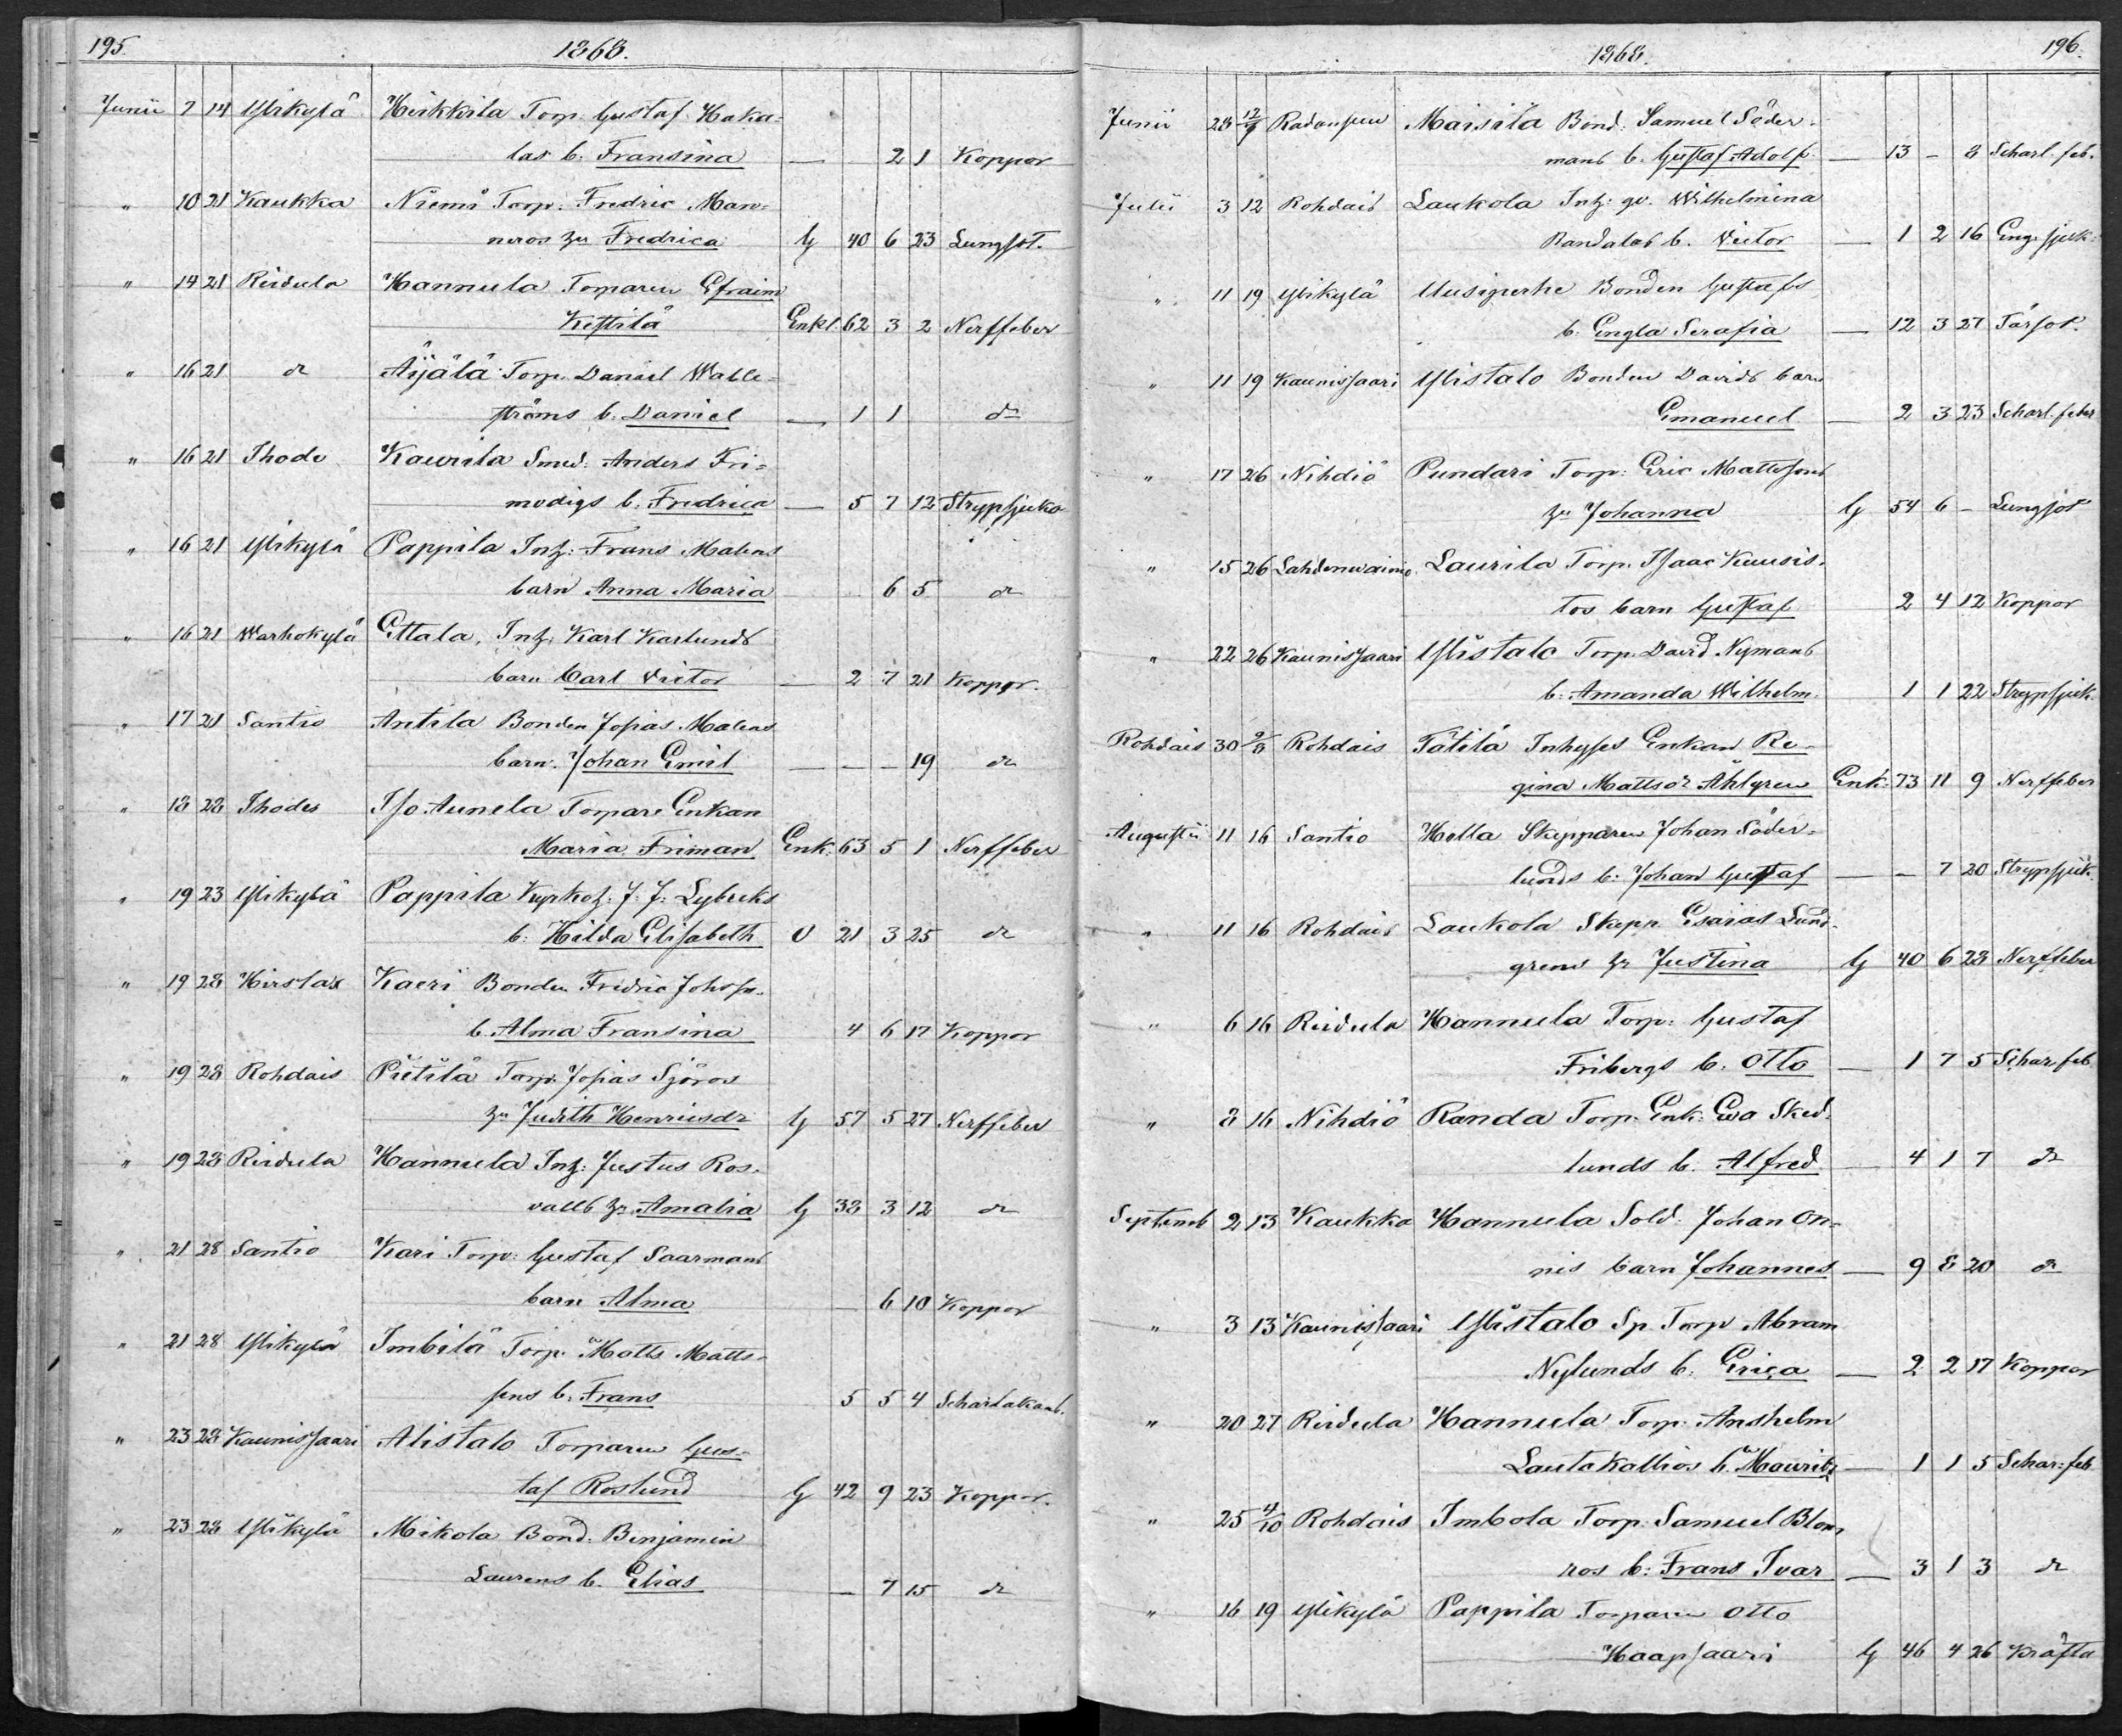 195. 1868.
Junii 7 14 Ylikylä Heikkilä Torp. Gustaf Haka-
las b. Fransina — 2 1 Koppor
" 10 21 Kaukka Niemi Torp. Fredric Man-
neros hu Fredrica G 40 6 23 Lungsot.
" 14 21 Reidula Hannula Torparen Efraim
Kestilä Enkl. 62 3 2 Nerffeber
" 16 21 d:o Äijälä Torp. Daniel Wahle-
ströms b. Daniel — 1 1 d:o
" 16 21 Ihode Kaurila Smed. Anders Fri-
modigs b. Fredrica — 5 7 12 Strypsjuka
" 16 21 Ylikylä Pappila Inh: Frans Malens
barn Anna Maria 6 5 d:o
" 16 21 Warhokylä Ettala, Inh. Karl Karlunds
barn Carl Victor — 2 7 21 Koppor.
" 17 21 Santio Antila Bonden Josias Malens
barn. Johan Emil — — 19 d:o
" 18 28 Ihodes Iso Aunela Torpare Enkan
Maria Friman Enk. 63 5 1 Nerffeber
" 19 23 Ylikylä Pappila Kyrkoh: J. J. Lybecks
b. Hilda Elisabeth O 21 3 25 d:o
" 19 28 Hirslax Kaeri Bonden Fredric Johss:
b. Alma Fransina 4 6 17 Koppor
" 19 28 Rohdais Pietilä Torp. Josias Sjöros
hu Judith Henricsdr G 57 5 27 Nerffeber
" 19 28 Reidula Hannula Inh: Justus Ros-
valls hu Amalia G 33 3 12 d:o
" 21 28 Santio Kari Torp: Gustaf Saarmans
barn Alma — 6 10 Koppor
" 21 28 Ylikylä Imbilä Torp. Matts Matts-
sons b. Frans 5 5 4 Scharlakans.
" 23 28 Kaunissaari Alistalo Torparen Gus-
taf Roslund G 42 9 23 Koppor.
" 23 28 Ylikylä Mikola Bond. Benjamin
Laurens b. Elias — 7 15 d:o
1868. 196.
Junii 28 12/7 Radansuu Maisila Bond. Samuel Söder-
mans b. Gustaf Adolf — 13 - 8 Scharl. feb.
Julii 3 12 Rohdais Laukola Inh: qv. Wilhelmina
Randalas b. Victor — 1 2 16 Eng. sjuk.
" 11 19 Ylikylä Uusiperhe Bonden Gustafs
b. Engla Serafia — 12 3 27 Tärsot.
" 11 19 Kaunissaari Ylistalo Bonden Davids barn
Emanuel — 2 3 23 Scharl. feber
" 17 26 Nihdiö Pundari Torp: Eric Mattssons
hu Johanna G 54 6 - Lungsot
" 15 26 Lahdenwainio Laurila Torp. Isaac Kuusis-
tos barn Gustaf 2 4 12 Koppor
" 22 26 Kaunissaari Ylistalo Torp. David Nymans
b. Amanda Wilhelm. 1 1 22 Strypsjuk.
Rohdais 30 9/8 Rohdais Tätilä Inhyses Enkan Re-
gina Mattsdr Åhlgren Enk. 73 11 9 Nerffeber
Augustii 11 16 Santio Holla Skepparen Johan Söder-
lunds b: Johan Gustaf — — 7 20 Strypsjuk.
" 11 16 Rohdais Laukola Skepp. Esaias Lund-
grens hu Justina G 40 6 28 Nerffeber
" 6 16 Reidula Hannula Torp: Gustaf
Fribergs b. Otto — 1 7 5 Schar. feb
" 8 16 Nihdiö Randa Torp. Enk. Eva Sked-
lunds b. Alfred — 4 1 7 d:o
Septemb 2 13 Kaukka Hannula Sold. Johan On-
nis barn Johannes — 9 8 20 d:o
" 3 13 Kaunissaari Ylistalo Sp. Torp Abram
Nylunds b. Erica — 2 2 17 Koppor
" 20 27 Reidula Hannula Torp. Anshelm
Lautakallios b. Mauritz — 1 1 5 Schar. feb
" 25 4/10 Rohdais Imbola Torp. Samuel Blom-
ros b: Frans Ivar — 3 1 3 d:o
" 16 19 Ylikylä Pappila Torparen Otto
Haapsaari G 46 4 26 Kräfta